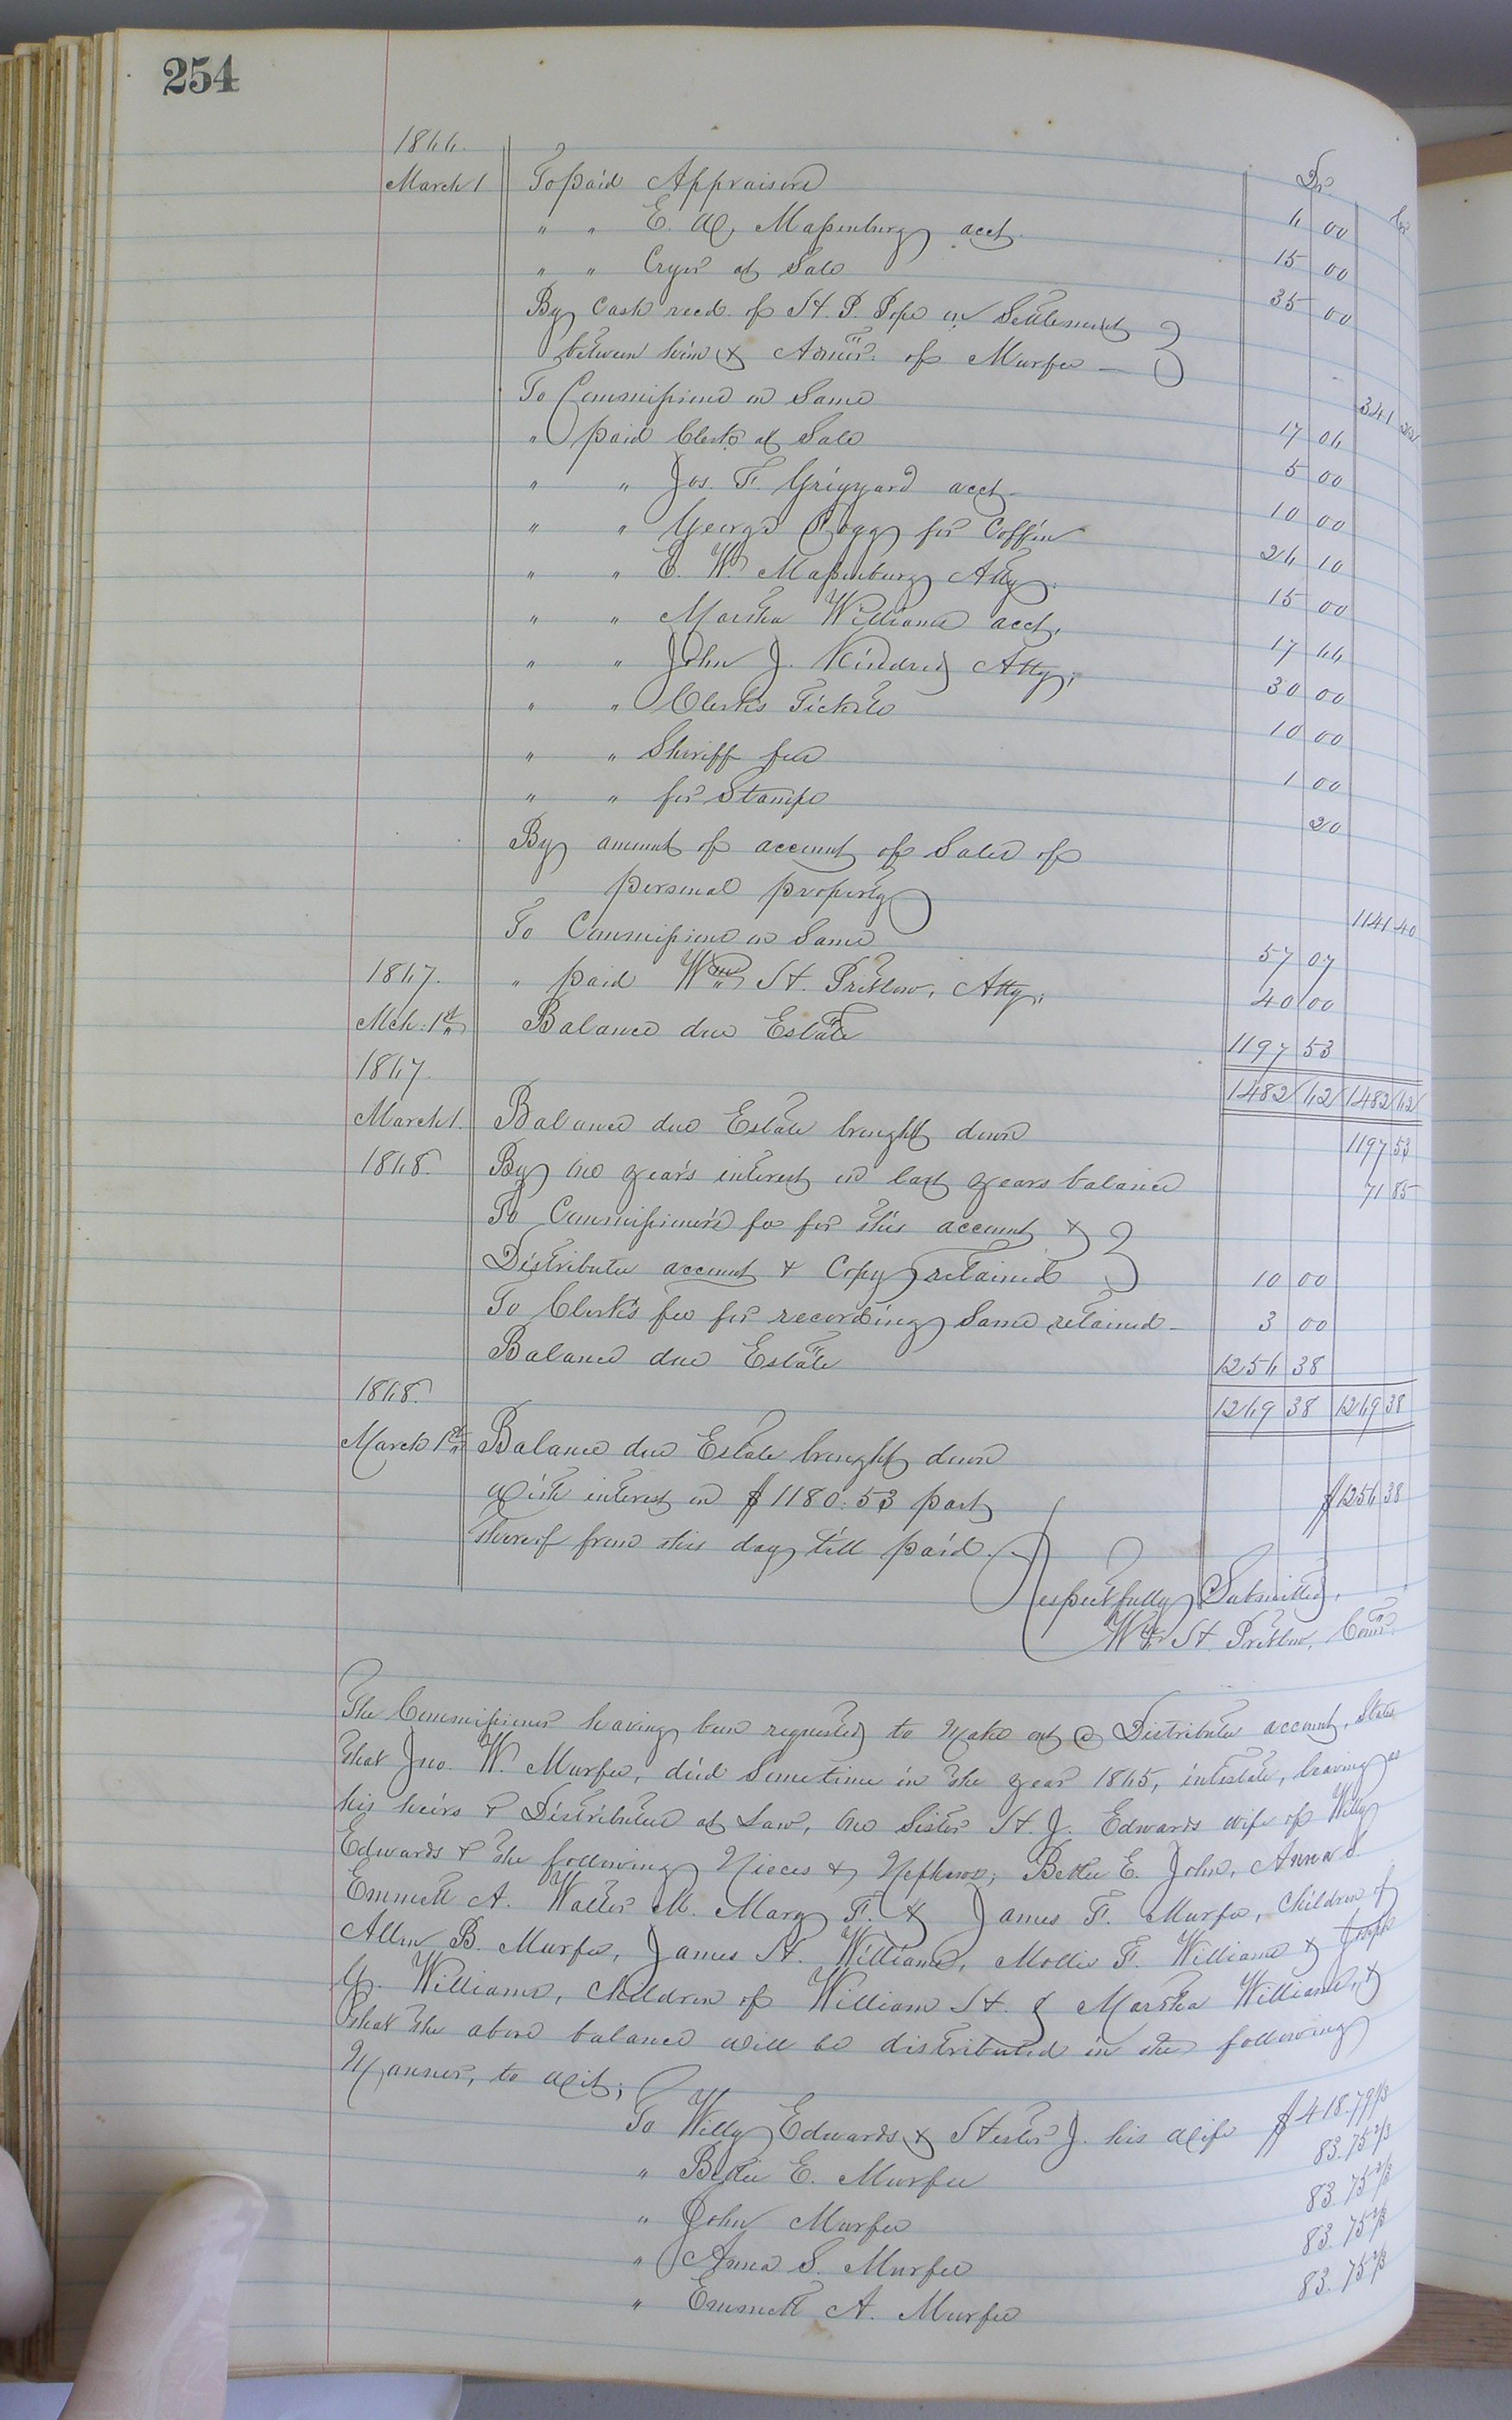 254
1866.
Dr Cr
March 1 To paid Appraisers 6 00
" " E. W. Massenburg acct. 15 00
" " Cryer at Sale 35 00
By Cash recd. of H. P. Pope on Settlement
between him & Admr. of Murfee — 341 22
To Commissions on Same 17 06
" paid Clerk at Sale 5 00
" " Jos. F. Griggard acct. 10 00
" " George Bogg for Coffin 26 10
" " E. W. Massenburg Atty. 15 00
" " Martha Williams acct. 17 66
" " John J. Kindred Atty; 30 00
" " Clerk's Tickets 10 00
" " Sheriff fees 1 00
" " for Stamps 20
By amount of account of Sales of
personal property 1141 40
To Commissions on Same 57 07
1867. " paid Wm. H. Pretlow, Atty; 40 00
Mch: 1st Balance due Estate 1197 53
1867. 1482 62 1482 62
March 1. Balance due Estate brought down 1197 53
1868. By one year's interest on last years balance 71 85
To Commissioner's fee for this account &
Distributee account & Copy retained 10 00
To Clerk's fee for recording Same retained 3 00
Balance due Estate 1256 38
1868. 1269 38 1269 38
March 1st Balance due Estate brought down
with interest on $1180.53 part $1256 38
thereof from this day till paid.
Respectfully Submitted,
Wm H. Pretlow, Comr.
The Commissioner having been requested to make out a Distributee account, States
that Jno. W. Murfee, died Sometime in the year 1865, intestate, leaving as
his heirs & Distributees at Law, one Sister H. J. Edwards wife of Willy
Edwards & the following Nieces & Nephews; Bettie E. John, Anna S.
Emmett A. Walter M. Mary F. & James F. Murfee, Children of
Allen B. Murfee, James H. Williams, Mollie F. Williams & Joseph
G. Williams, Children of William H. & Martha Williams, &
that the above balance will be distributed in the following
Manner, to wit;
To Willy Edwards & Hester J. his wife $418.79 1/3
" Bettie E. Murfee 83.75 2/3
" John Murfee 83.75 2/3
" Anna S. Murfee 83.75 2/3
" Emmett A. Murfee 83.75 2/3